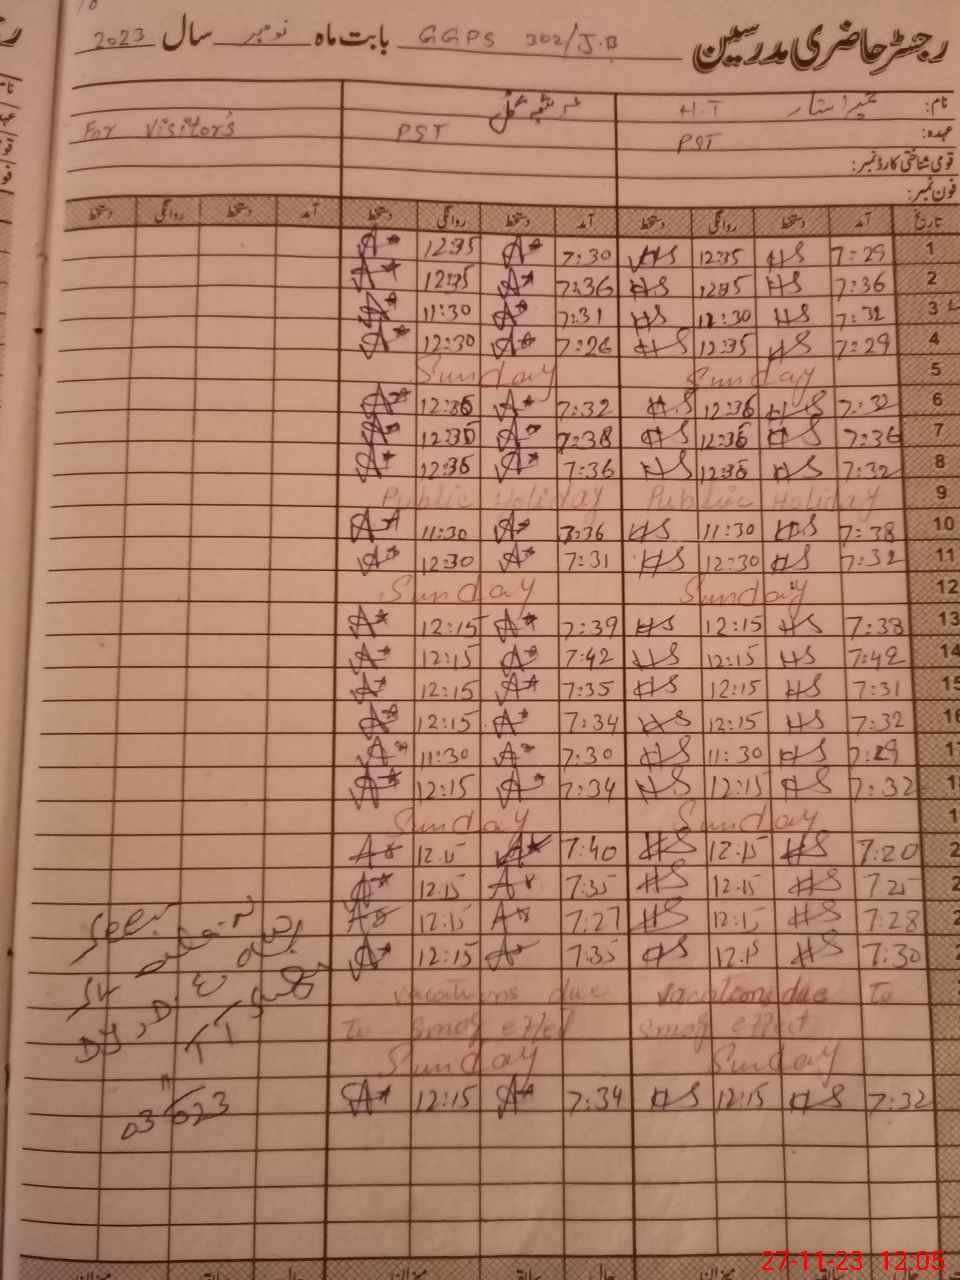 رجسٹر حاضری مدرسین GGPS 302/J.B بابت ماہ نومبر سال 2023
نام: H.T
عہدہ: PST PST For Visitor's
قومی شناختی کارڈ نمبر:
فون نمبر:
تاریخ آمد دستخط روانگی دستخط آمد دستخط روانگی دستخط آمد دستخط روانگی دستخط
1 7:29 HS 12:35 HS 7:30 A* 12:35 A*
2 7:36 HS 12:35 HS 7:36 A* 12:35 A*
3 7:32 HS 12:30 HS 7:31 A* 11:30 A*
4 7:29 HS 12:35 HS 7:26 A* 12:30 A*
5 Sunday Sunday
6 7:32 HS 12:36 HS 7:32 A* 12:36 A*
7 7:36 HS 12:36 HS 7:38 A* 12:36 A*
8 7:32 HS 12:36 HS 7:36 A* 12:36 A*
9 Public Holiday Public Holiday
10 7:38 HS 11:30 HS 7:36 A* 11:30 A*
11 7:32 HS 12:30 HS 7:31 A* 12:30 A*
12 Sunday Sunday
13 7:38 HS 12:15 HS 7:39 A* 12:15 A*
14 7:42 HS 12:15 HS 7:42 A* 12:15 A*
15 7:31 HS 12:15 HS 7:35 A* 12:15 A*
16 7:32 HS 12:15 HS 7:34 A* 12:15 A*
17 7:29 HS 11:30 HS 7:30 A* 11:30 A*
18 7:32 HS 12:15 HS 7:34 A* 12:15 A*
Sunday Sunday
7:20 HS 12:15 HS 7:40 A* 12:15 A*
7:25 HS 12:15 HS 7:35 A* 12:15 A*
7:28 HS 12:15 HS 7:27 A* 12:15 A*
7:30 HS 12:15 HS 7:35 A* 12:15 A*
vacations due vacations due To
To smog effect smog effect
Sunday Sunday
7:32 HS 12:15 HS 7:34 A* 12:15 A*
Seen
03
11
023
27-11-23 12:05